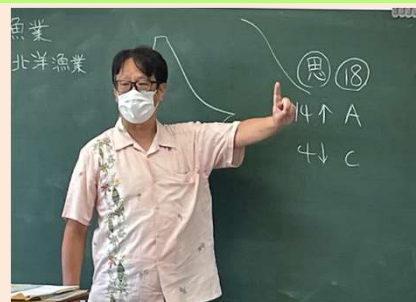 漁業
北洋漁業
思 18
14↑ A
4↓ C